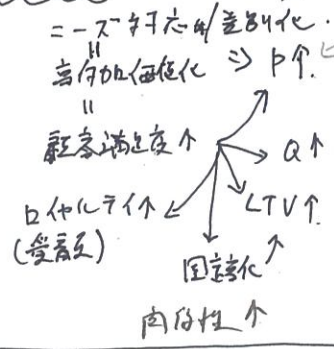 ニーズ対応/差別化
||
高付加価値化 => P↑
||
顧客満足度↑
Q↑
ロイヤルティ↑
LTV↑
(愛顧)
固定化↑
関係性↑